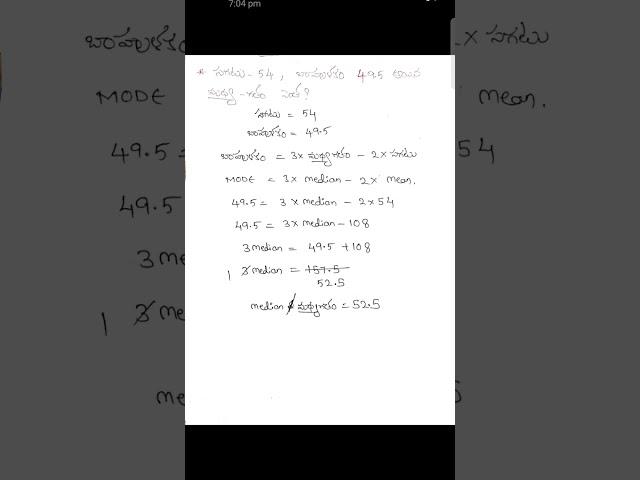 7:04 pm
* సగటు - 54, బాహుళకం 49.5 అయిన
మధ్యగతం ఎంత?
సగటు = 54
బాహుళకం = 49.5
బాహుళకం = 3× మధ్యగతం - 2× సగటు
MODE = 3× median - 2× mean.
49.5 = 3× median - 2×54
49.5 = 3× median - 108
3 median = 49.5 + 108
1 3 median = 157.5
52.5
median / మధ్యగతం = 52.5
బాహుళకం
MODE
49.5 =
49.5
3 me
1 3 me
me
× సగటు
mean.
54